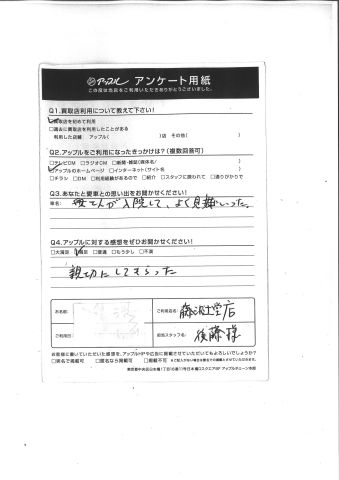 アップル アンケート用紙
この度は当店をご利用いただきありがとうございました。
Q1.買取店利用について教えて下さい!
買取店を初めて利用
□過去に買取店を利用したことがある
利用した店舗 アップル( )店 その他( )
Q2.アップルをご利用になったきっかけは?(複数回答可)
□テレビCM □ラジオCM □新聞・雑誌(媒体名/ )
アップルのホームページ □インターネット(サイト名 )
□チラシ □DM □利用経験があるので □紹介 □スタッフに誘われて □通りがかりで
Q3.あなたと愛車との思い出をお聞かせください!
車名:
入院して、よく見舞いいった。
Q4.アップルに対する感想をぜひお聞かせください!
□大満足 満足 □普通 □もう少し □不満
親切にしてもらった
お名前:
ご利用店名: 藤沢土堂店
ご利用日:
担当スタッフ名: 後藤様
お客様に書いていただいた感想を、アップルHPや広告に掲載させていただいてもよろしいでしょうか?
□実名で掲載可 □匿名なら掲載可 □掲載不可 ※ご記入がない場合は匿名での掲載とさせていただきます。